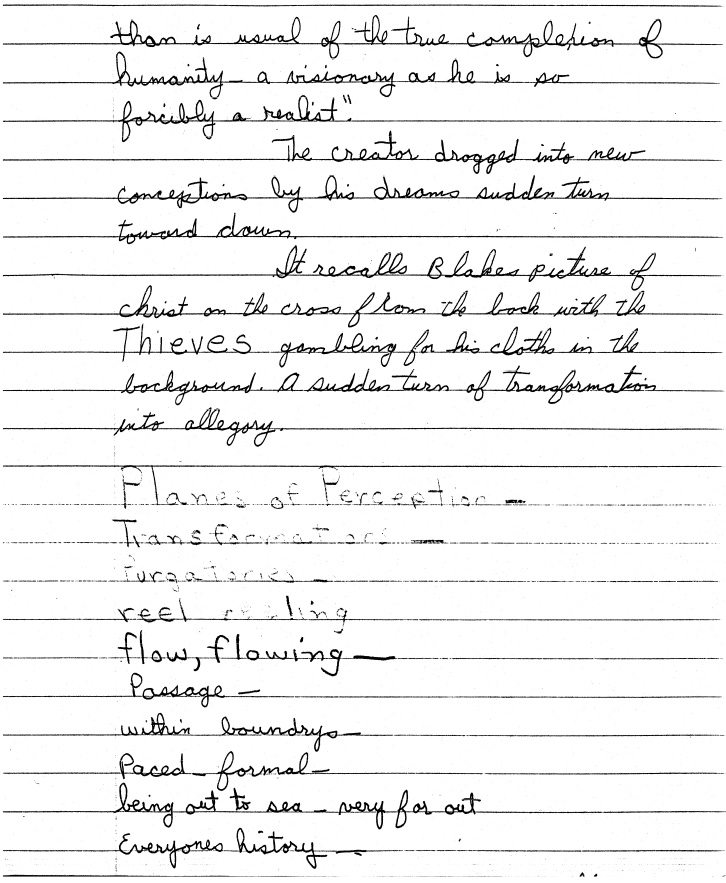 than is usual of the true complexion of
humanity – a visionary as he is so
forcibly a realist".
The creator dragged into new
conceptions by his dreams sudden turn
toward dawn.
It recalls Blakes picture of
christ on the cross from the back with the
Thieves gambling for his cloths in the
background. A sudden turn of transformation
into allegory.
Planes of Perception –
Transformations –
Purgatories –
reel reeling
flow, flowing –
Passage –
within boundrys –
Paced – formal –
being out to sea – very far out
Everyones history –